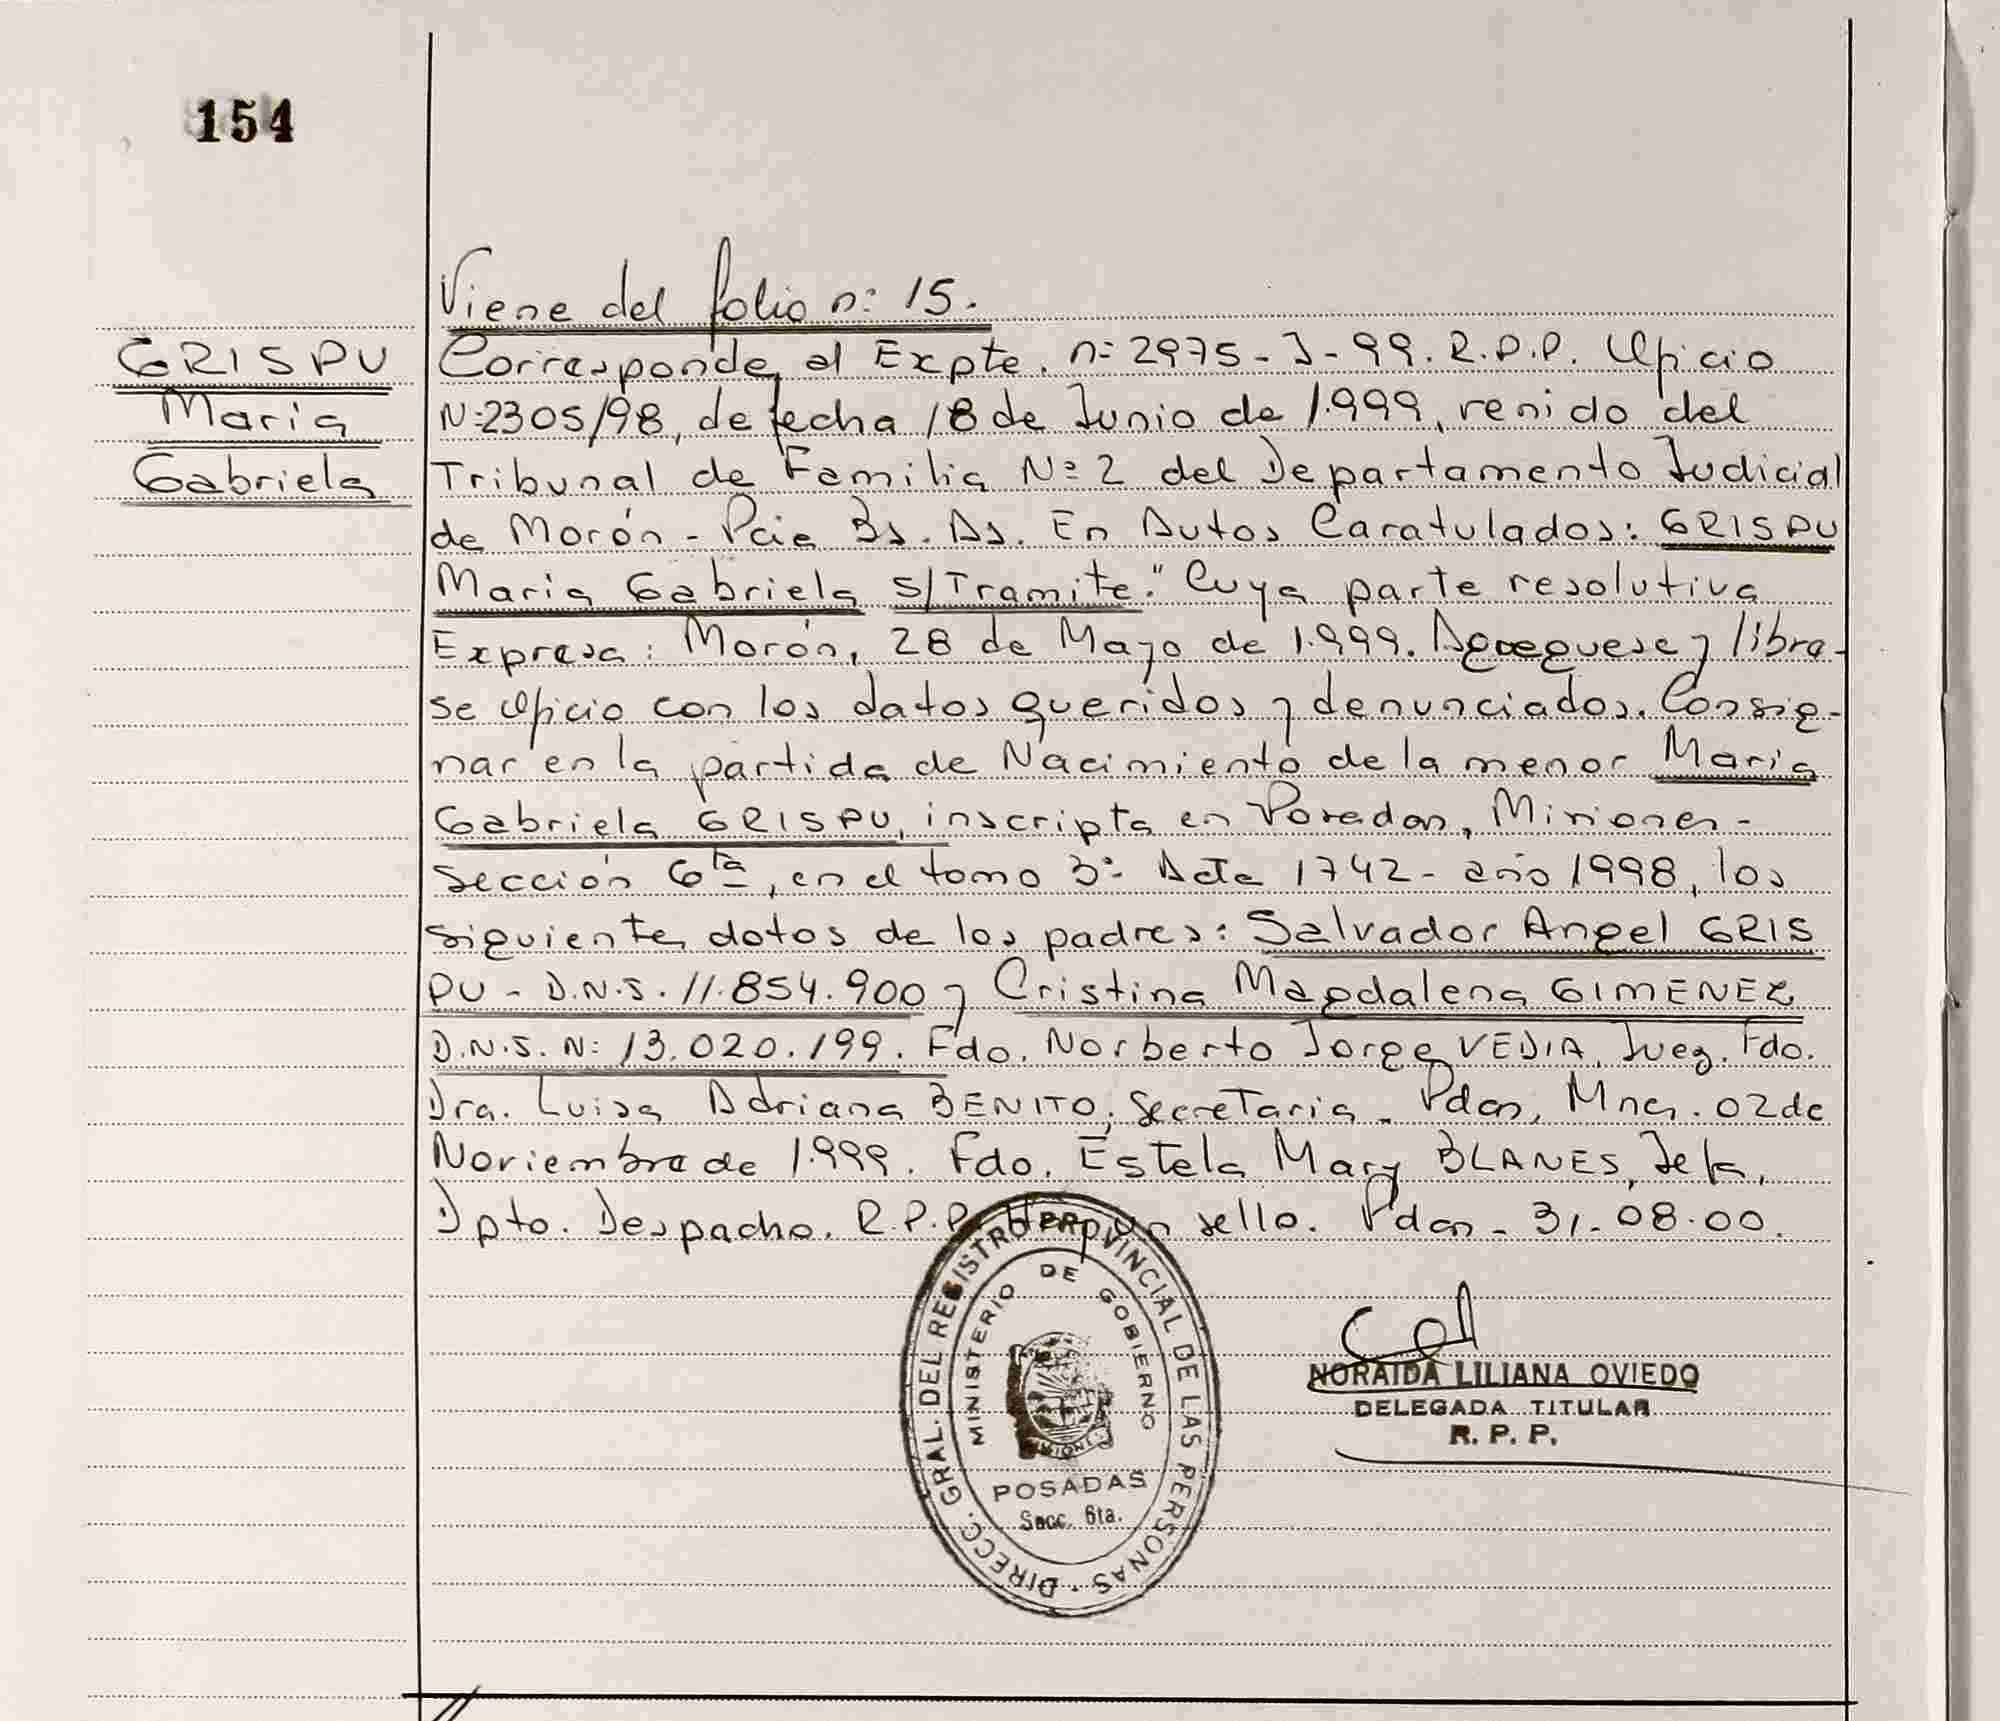 154
Viene del folio n: 15.
GRISPU
Maria
Gabriela
Corresponde al Expte. n: 2975-J-99. R.P.P. Oficio
N: 2305/98, de fecha 18 de Junio de 1.999, venido del
Tribunal de Familia Nº 2 del Departamento Judicial
de Morón - Pcia Bs. As. En Autos Caratulados: GRISPU
Maria Gabriela s/Tramite." Cuya parte resolutiva
Expresa: Morón, 28 de Mayo de 1.999. Agreguese y libra-
se oficio con los datos queridos y denunciados. Consig-
nar en la partida de Nacimiento de la menor Maria
Gabriela GRISPU, inscripta en Posadas, Misiones -
Sección 6ta, en el tomo 3º Acta 1742 - año 1998, los
siguientes datos de los padres: Salvador Angel GRIS
PU - D.N.I. 11.854.900 y Cristina Magdalena GIMENEZ
D.N.I. N: 13.020.199. Fdo. Norberto Jorge VEDIA, Juez. Fdo.
Dra. Luisa Adriana BENITO, Secretaria - Pdas, Mnes. 02 de
Noviembre de 1.999. Fdo. Estela Mary BLANES, Jefa,
Dpto. Despacho. R.P.P. Hay un sello. Pdas - 31-08-00.
DIRECC. GRAL. DEL REGISTRO PROVINCIAL DE LAS PERSONAS
MINISTERIO DE GOBIERNO
MISIONES
POSADAS
Secc. 6ta.
NORAIDA LILIANA OVIEDO
DELEGADA TITULAR
R. P. P.